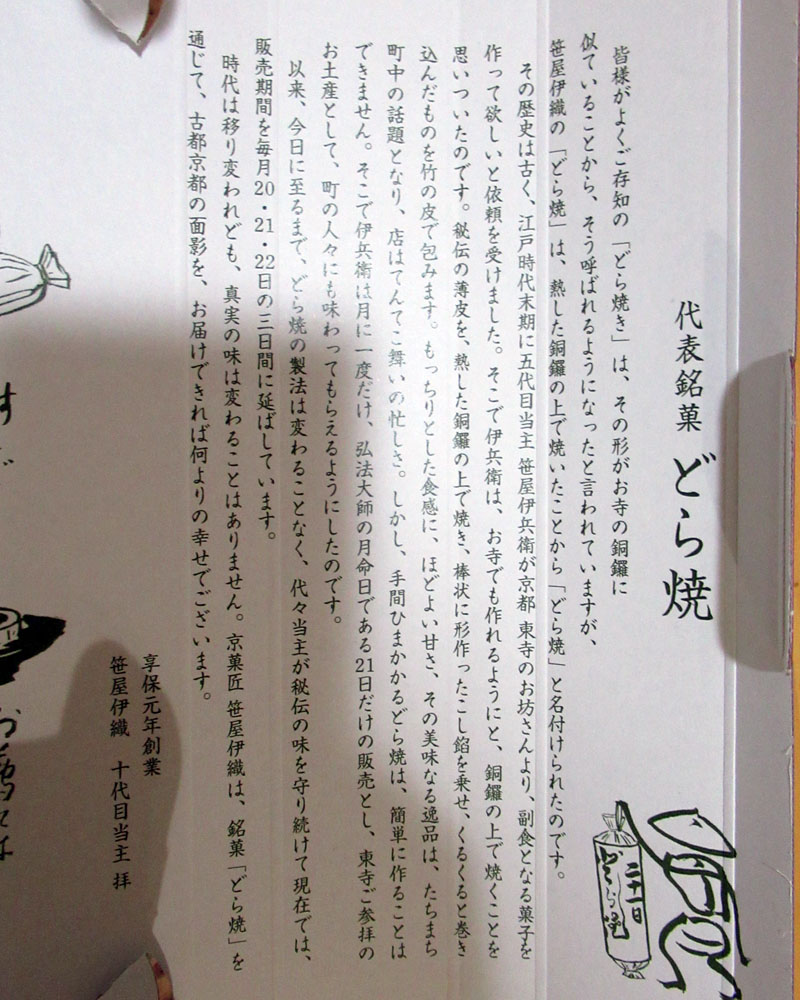 代表銘菓 どら焼
皆様がよくご存知の「どら焼き」は、その形がお寺の銅鑼に
似ていることから、そう呼ばれるようになったと言われていますが、
笹屋伊織の「どら焼」は、熱した銅鑼の上で焼いたことから「どら焼」と名付けられたのです。
その歴史は古く、江戸時代末期に五代目当主 笹屋伊兵衛が京都 東寺のお坊さんより、副食となる菓子を
作って欲しいと依頼を受けました。そこで伊兵衛は、お寺でも作れるようにと、銅鑼の上で焼くことを
思いついたのです。秘伝の薄皮を、熱した銅鑼の上で焼き、棒状に形作ったこし餡を乗せ、くるくると巻き
込んだものを竹の皮で包みます。もっちりとした食感に、ほどよい甘さ、その美味なる逸品は、たちまち
町中の話題となり、店はてんてこ舞いの忙しさ。しかし、手間ひまかかるどら焼は、簡単に作ることは
できません。そこで伊兵衛は月に一度だけ、弘法大師の月命日である21日だけの販売とし、東寺ご参拝の
お土産として、町の人々にも味わってもらえるようにしたのです。
以来、今日に至るまで、どら焼の製法は変わることなく、代々当主が秘伝の味を守り続けて現在では、
販売期間を毎月20・21・22日の三日間に延ばしています。
時代は移り変われども、真実の味は変わることはありません。京菓匠 笹屋伊織は、銘菓「どら焼」を
通じて、古都京都の面影を、お届けできれば何よりの幸せでございます。
享保元年創業
笹屋伊織 十代目当主 拝
二十一日
どら焼